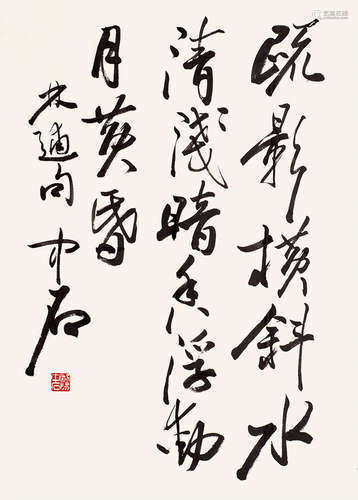 疏影横斜水
清浅暗香浮动
月黄昏
林逋句 中石